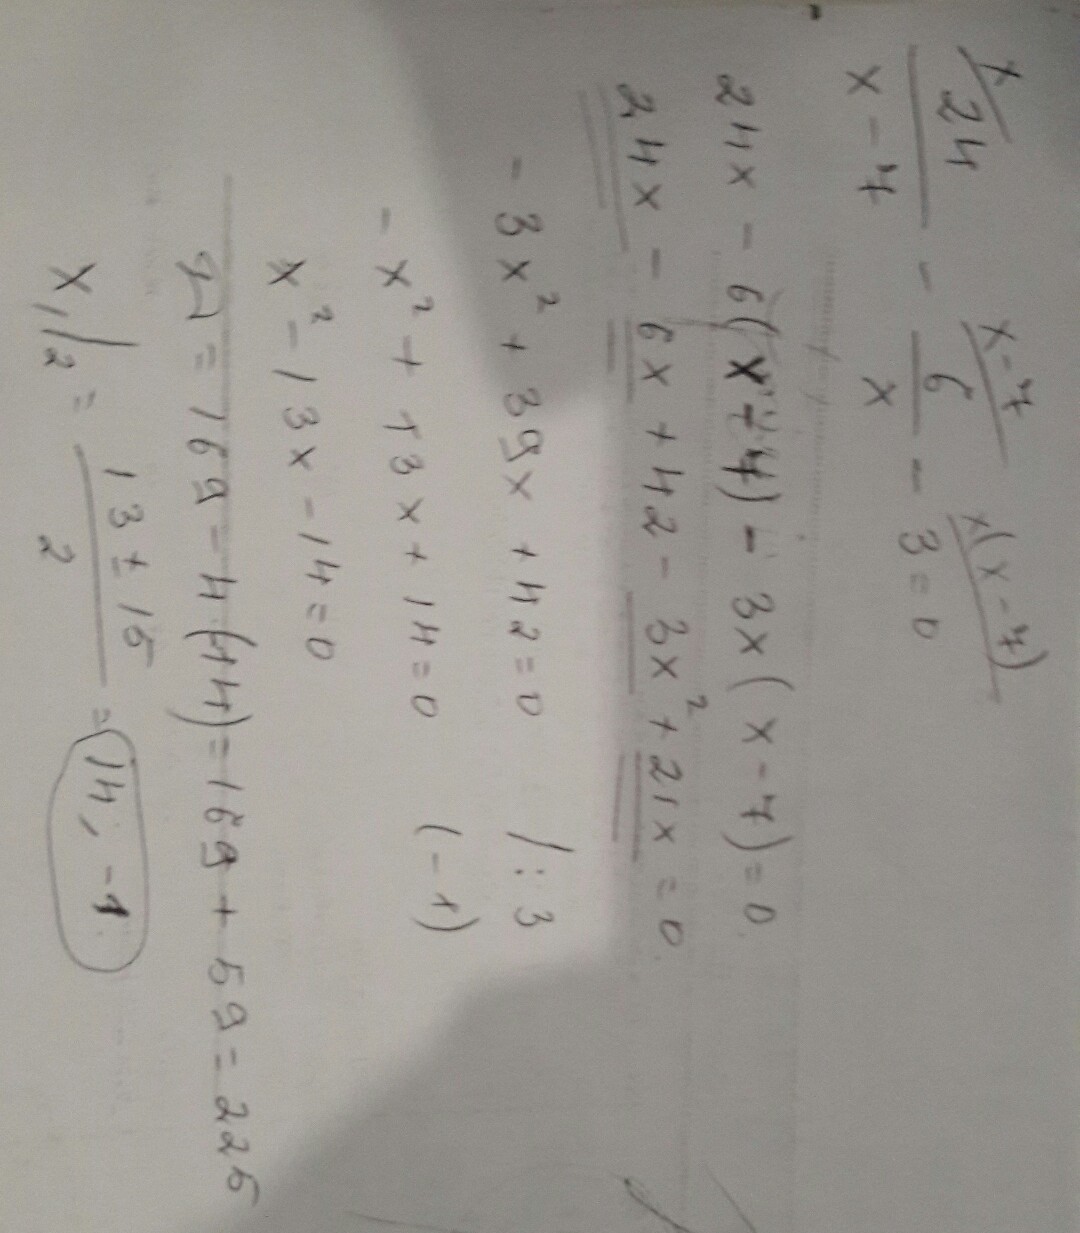 x x-7 x(x-7)
24/x-7 - 6/x - 3 = 0
24x - 6(x+7) - 3x(x-7) = 0
24x - 6x + 42 - 3x² + 21x = 0
-3x² + 39x + 42 = 0 /:3
-x² + 13x + 14 = 0 (-1)
x² - 13x - 14 = 0
D = 169 - 4·(-14) = 169 + 59 = 225
x₁/₂ = 13 ± 15/2 = 14; -1